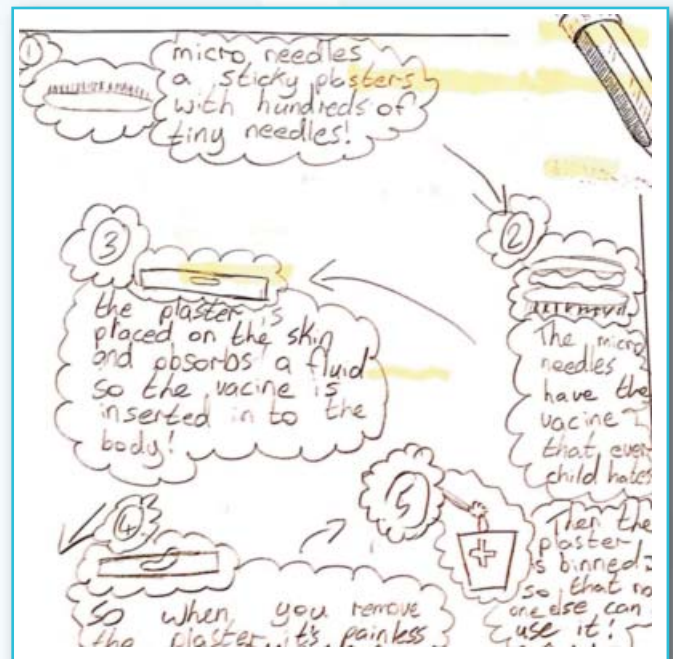 1
micro needles
a sticky plasters
with hundreds of
tiny needles!
2
The micro
needles
have the
vacine
that ever
child hates
3
the plaster is
placed on the skin
and absorbs a fluid
so the vacine is
inserted in to the
body!
4
So when you remove
the plaster it's painless
5
Then the
plaster
is binned
so that no
one else can
use it!